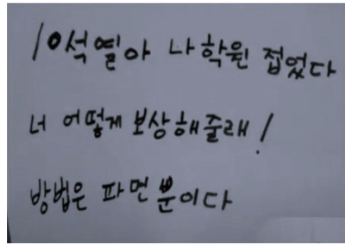 10석열아 나 학원 접었다
너 어떻게 보상해줄래!
방법은 파면 뿐이다